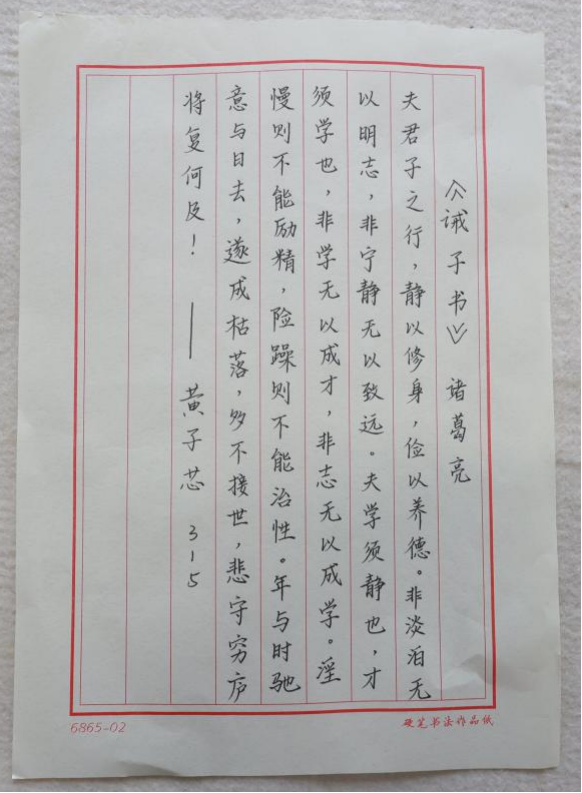 《诫子书》 诸葛亮
夫君子之行，静以修身，俭以养德。非淡泊无
以明志，非宁静无以致远。夫学须静也，才
须学也，非学无以成才，非志无以成学。淫
慢则不能励精，险躁则不能治性。年与时驰
意与日去，遂成枯落，多不接世，悲守穷庐
将复何及！ —— 黄子芯 3-15
6865-02
硬笔书法作品纸